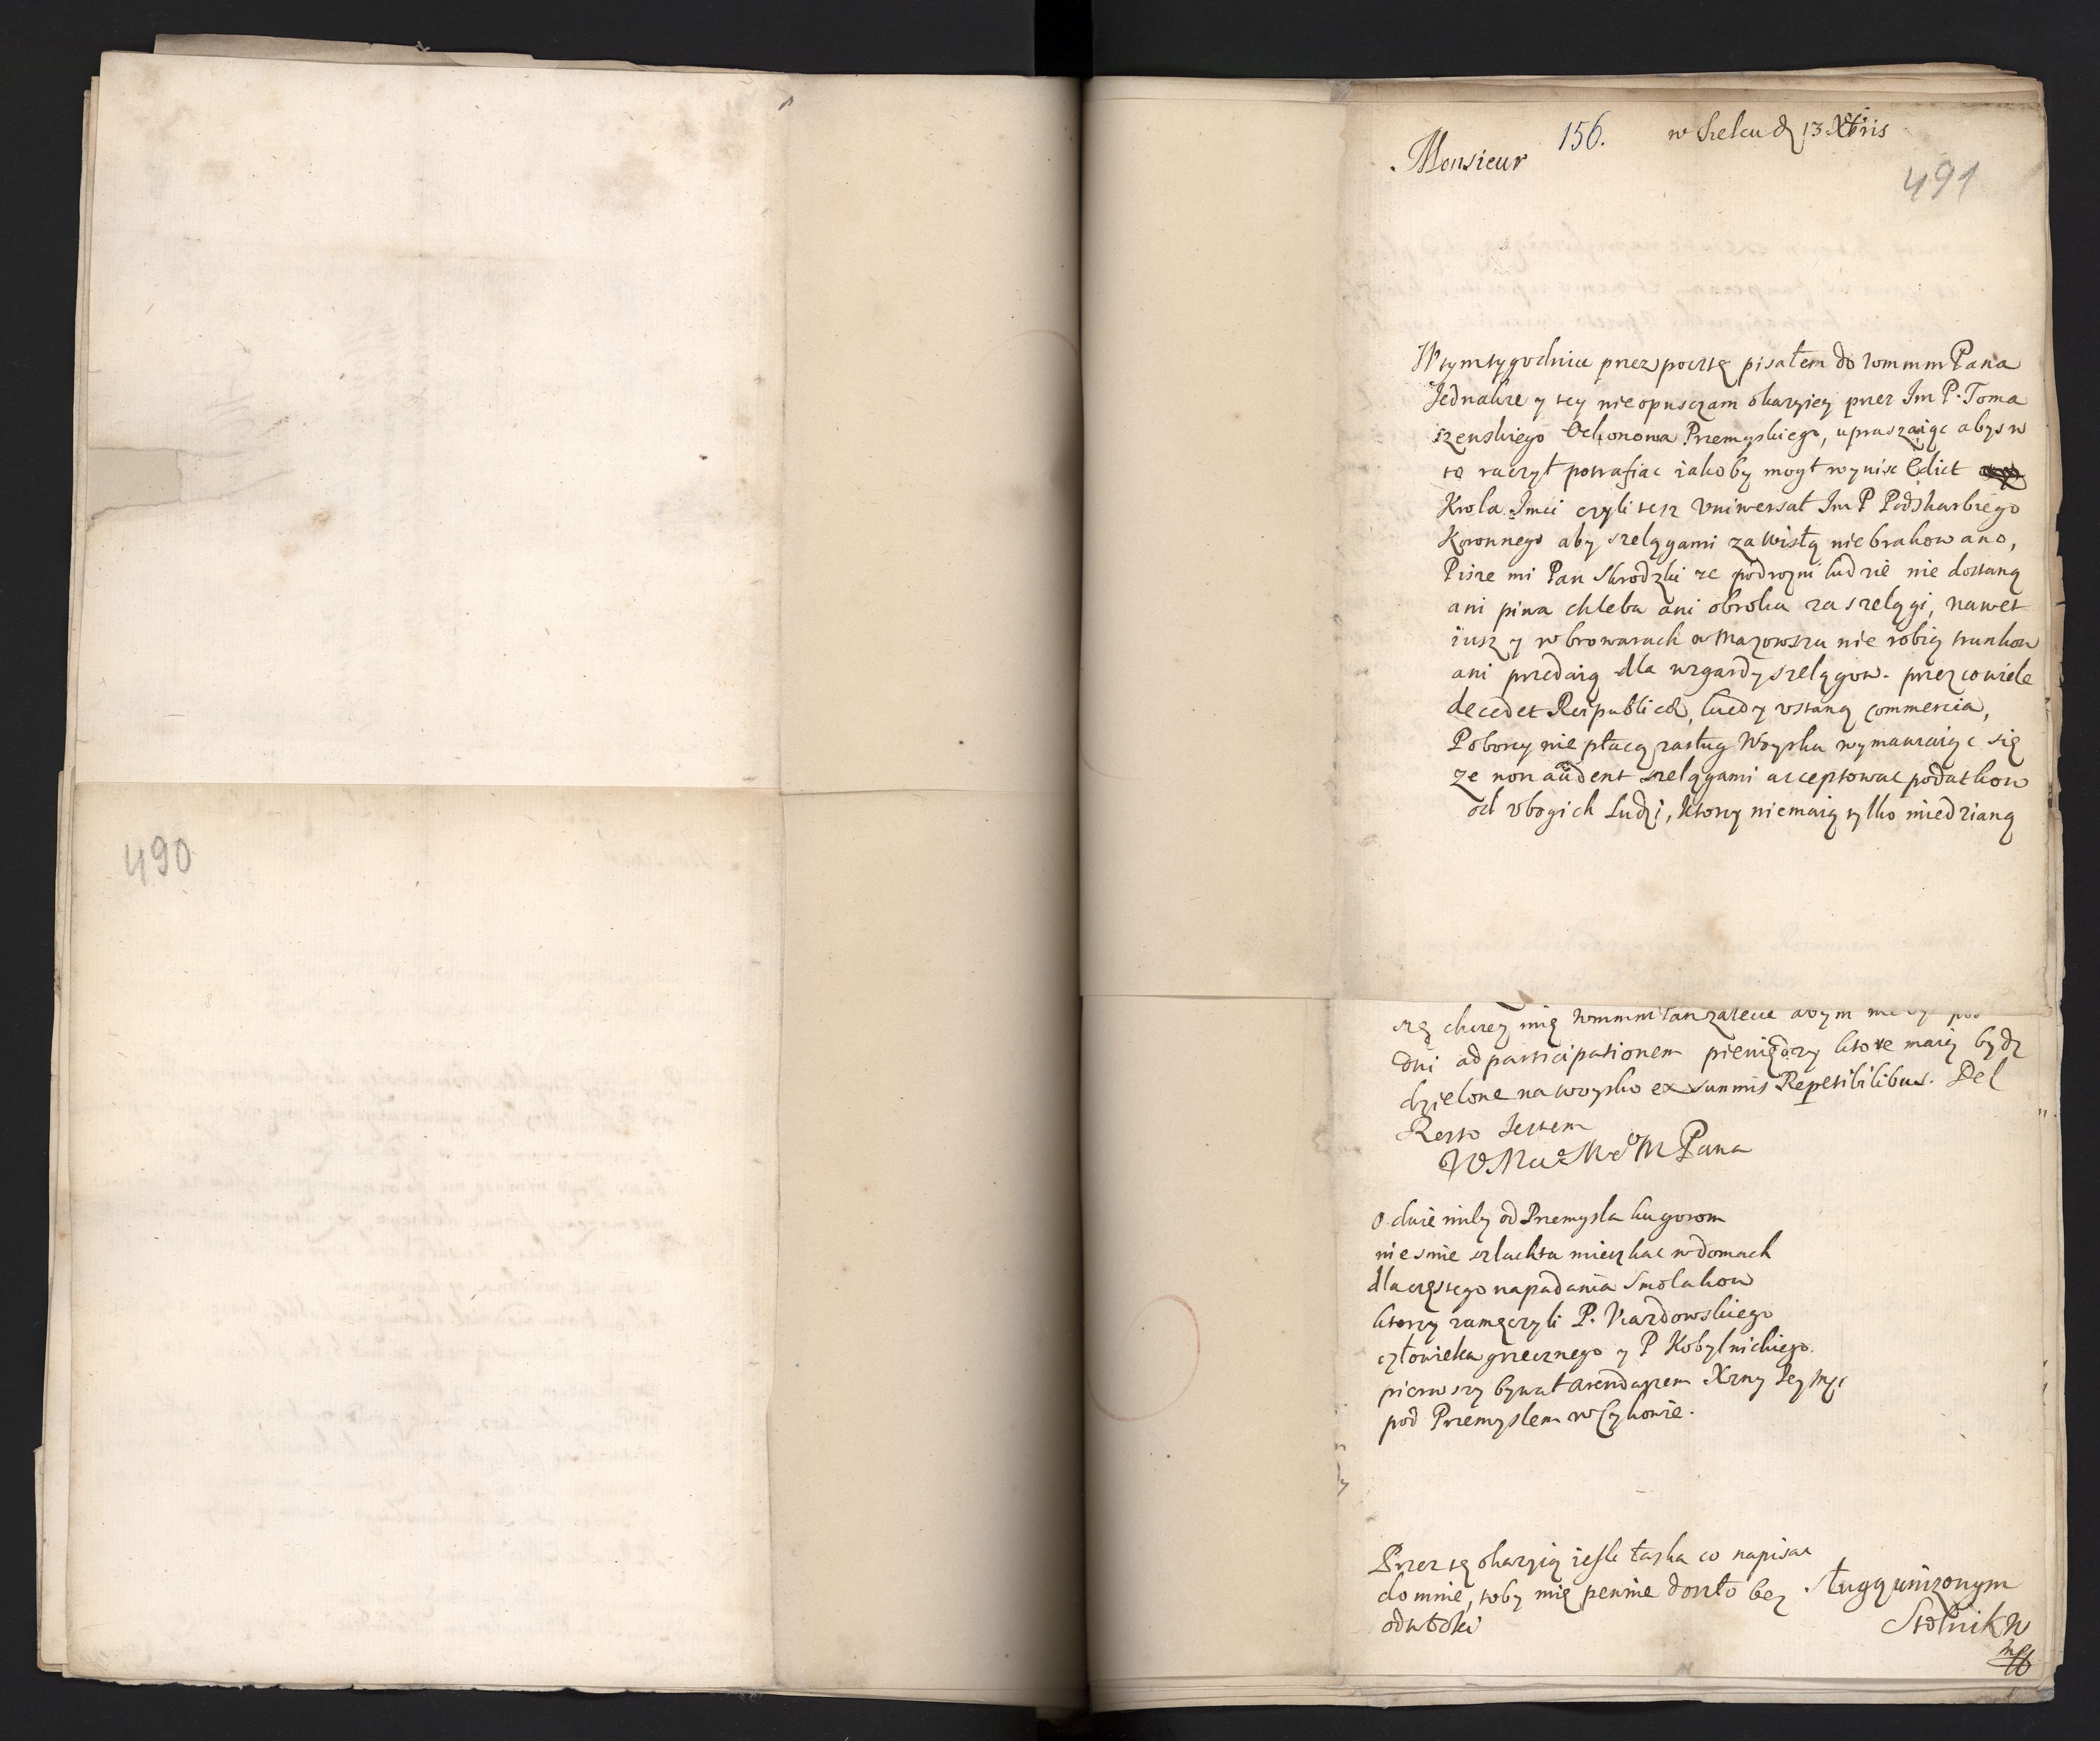 490
156. w Sielcu d 13 Xbris
Monsieur
491
W tym tygodniu przez pocztę pisałem do wmmm Pana
Jednakze y tey nie opusczam okazyiey przez Im P. Toma
szewskiego Przemyskiego, upraszaiąc abys w
to raczył potrafiac iakoby mogł wynisc Edict
Krola Jmci czyli tesz Vniwersał Im P Podskarbiego
Koronnego aby szelągami za Wisłą niebrakowano,
Pisze mi Pan Skrodzki ze podrozni ludzie nie dostaną
ani piwa chleba ani obroku za szelągi, nawet
iusz y w browarach w Mazowszu nie robią trunkow
ani przedaią dla wzgardy szelągow. przez co wiele
decedet Reipublicæ, kiedy vstaną commercia,
Poborcy nie płacą zasług Woysku wymawiaiąc się
ze non audent szelągami acceptowac podatkow
od vbogich Ludzi, ktorzy niemaią tylko miedzianą
chciey mię wmmm Pan
dni ad participationem pieniędzy ktore maią bydz
dzielone na woysko ex summis Repetibilibus. Del
Resto Jestem
W M M M Pana
o dwie mily od Przemysla ku gorom
niesmie szlachta mieszkac w domach
dla częstego napadania Smolakow
ktorzy zamęczyli P.
człowieka grzecznego y P Kobylnickiego.
pierwszy bywał arendarzem Xzny Jey Mci
pod Przemyslem w Cykowie.
Przez tę okazyią iesli łaska co napisac
do mnie, toby mię pewnie doszło bez
odwłoki
sługą unizonym
Stolnik W
mp